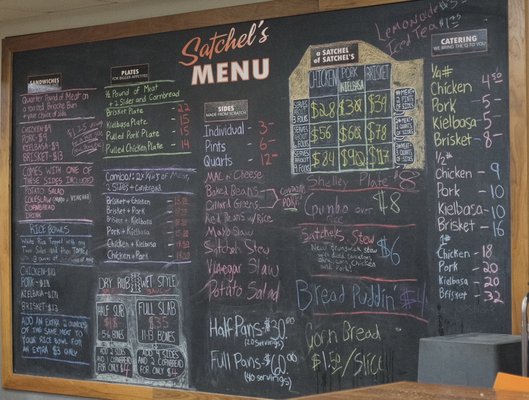 Satchel's
MENU
SANDWICHES
Quarter Pound of Meat on
a toasted Brioche Bun
+ your choice of side
CHICKEN $9
PORK $9
KIELBASA $9
BRISKET $13
COMES WITH ONE OF
THESE SIDES INCLUDED
POTATO SALAD
COLESLAW (MAYO / VINEGAR)
CORNBREAD
DRINK
RICE BOWLS
CHICKEN
PORK
KIELBASA
BRISKET
ADD AN EXTRA 2 OUNCES
OF THE SAME MEAT TO
YOUR RICE BOWL FOR
AN EXTRA $3 ONLY
PLATES
1/2 Pound of Meat
+ 2 Sides and Cornbread
Brisket Plate - 22
Kielbasa Plate - 15
Pulled Pork Plate - 15
Pulled Chicken Plate - 14
Combos: 2 x 1/4# of Meat,
2 SIDES + Cornbread
Brisket + Chicken
Brisket + Pork
Brisket + Kielbasa
Pork + Kielbasa
Chicken + Kielbasa
Chicken + Pork
DRY RUB
WET STYLE
HALF SUB
$18
5-6 BONES
FULL SLAB
$35
11-13 BONES
ADD 2 SIDES
AND 1 CORNBREAD
FOR ONLY $4
ADD 2 SIDES
AND 2 CORNBREAD
FOR ONLY $4
SIDES
MADE FROM SCRATCH
Individual - 3-
Pints - 6-
Quarts - 12-
Mac n Cheese
Baked Beans
Collard Greens
Red Beans w/Rice
Mayo Slaw
Satchel's Stew
Vinegar Slaw
Potato Salad
Half Pans - $30.00
(20 servings)
Full Pans - $60.00
(40 servings)
a SATCHEL
OF SATCHEL'S
CHICKEN
PORK
KIELBASA
BRISKET
$28
$30
$39
$56
$60
$78
$84
$90
$117
Shelley Plate $8
Gumbo over $8
Satchel's Stew $6
Brunswick stew
Bread Puddin' $4
Corn Bread
$1.50/Slice
Lemonade $3-
Iced Tea
CATERING
WE BRING THE Q TO YOU
1/4#
Chicken 4.50
Pork 5-
Kielbasa 5-
Brisket - 8-
1/2#
Chicken - 9
Pork - 10
Kielbasa - 10
Brisket - 16
1#
Chicken - 18
Pork - 20
Kielbasa - 20
Brisket - 32